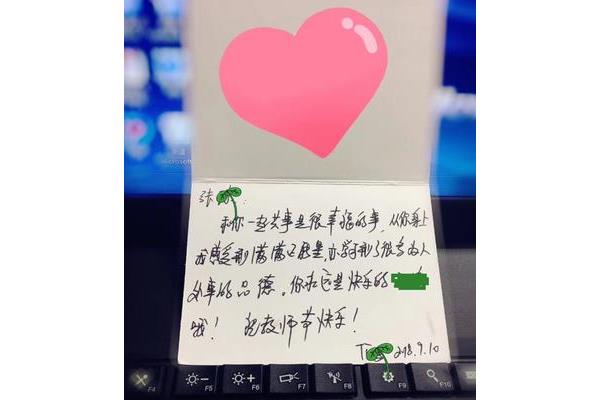 Microsoft
张
和你一起共事是很幸福的事,从你身上
我感受到满满正能量,亦学到了很多为人
处事的品德。你永远是快乐的
哦! 祝教师节快乐!
2018.9.10
F4 F5 F6 F7 F8 F9 F10